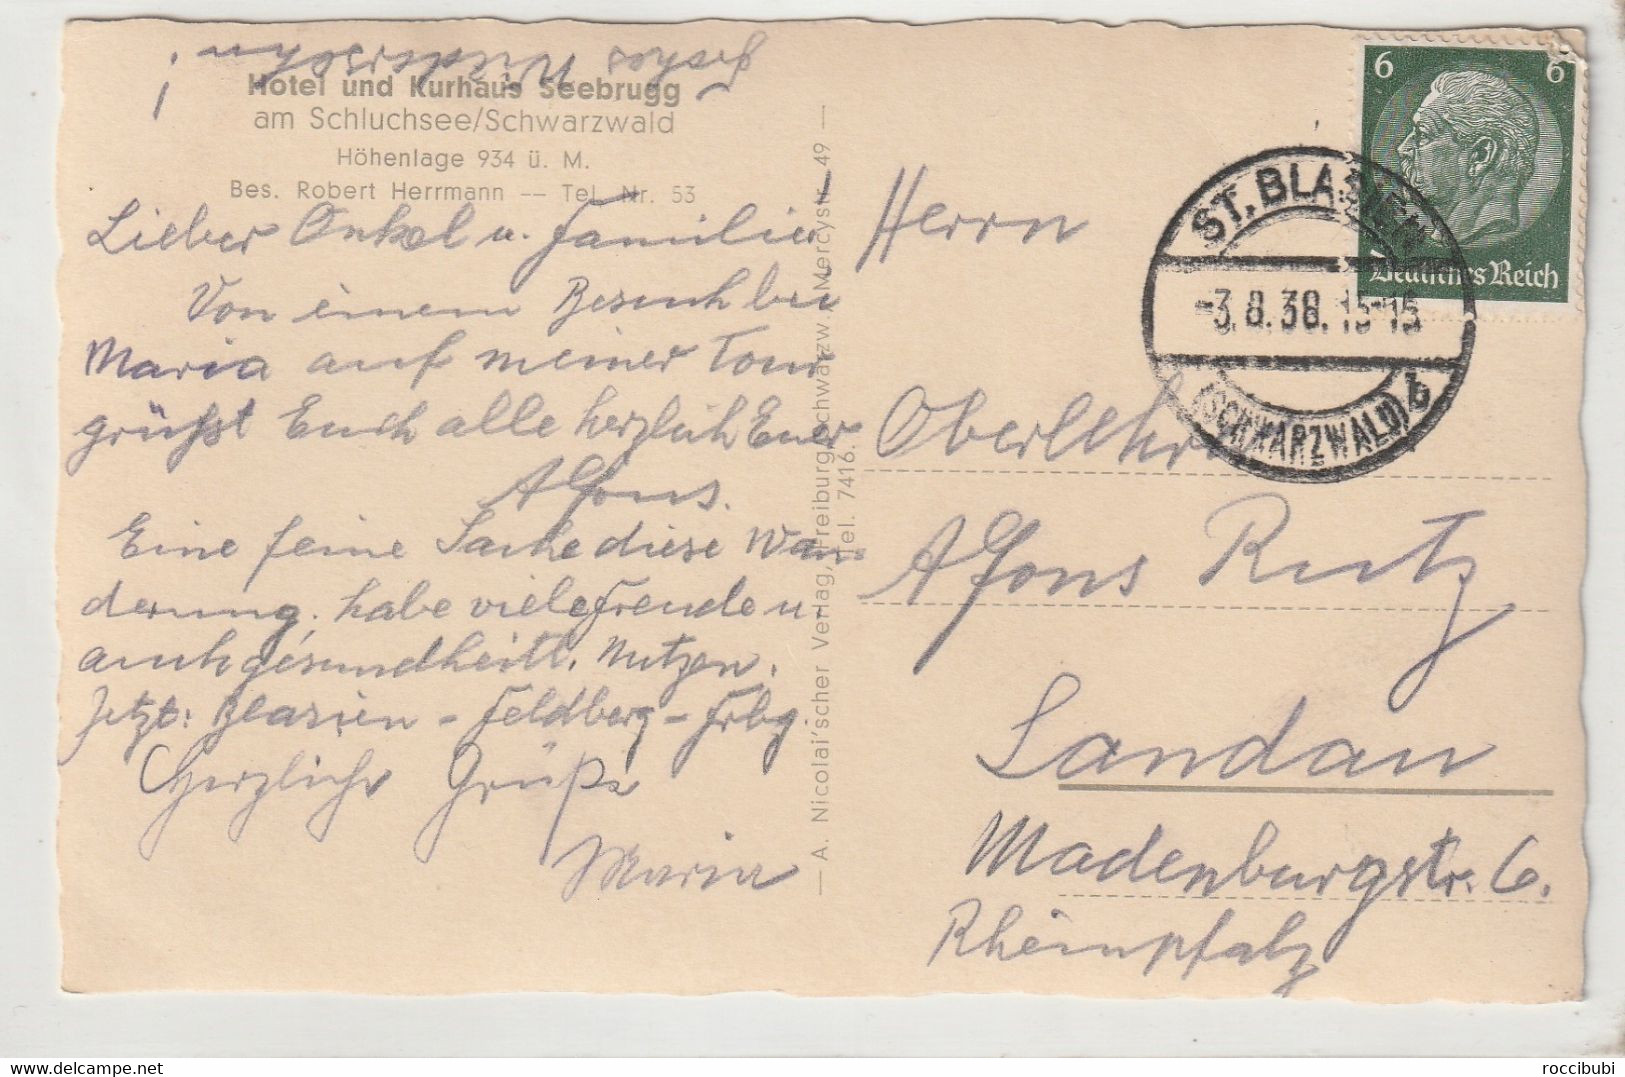 Hotel und Kurhaus Seebrugg
am Schluchsee/Schwarzwald
Höhenlage 934 ü. M.
Bes. Robert Herrmann — Tel. Nr. 53
Lieber Onkel u. Familie!
Von einem Besuch bei
Maria auf meiner Tour
grüßt Euch alle herzlich Euer
Alfons.
Eine feine Sache diese Wan-
derung, habe viele Freude u.
auch gesundheitl. Nutzen.
Jetzt: Blasien - Feldberg - Frbg
Herzliche Grüße
Maria
— A. Nicolai'scher Verlag, Freiburg/Schwarzw., Mercystr. 49 —
Tel. 7416.
6 6
Deutsches Reich
ST. BLASIEN
-3.8.38.15-15
(SCHWARZWALD) b
Herrn
Oberlehrer
Alfons Rutz
Landau
Madenburgstr. 6.
Rheinpfalz
roccibubi